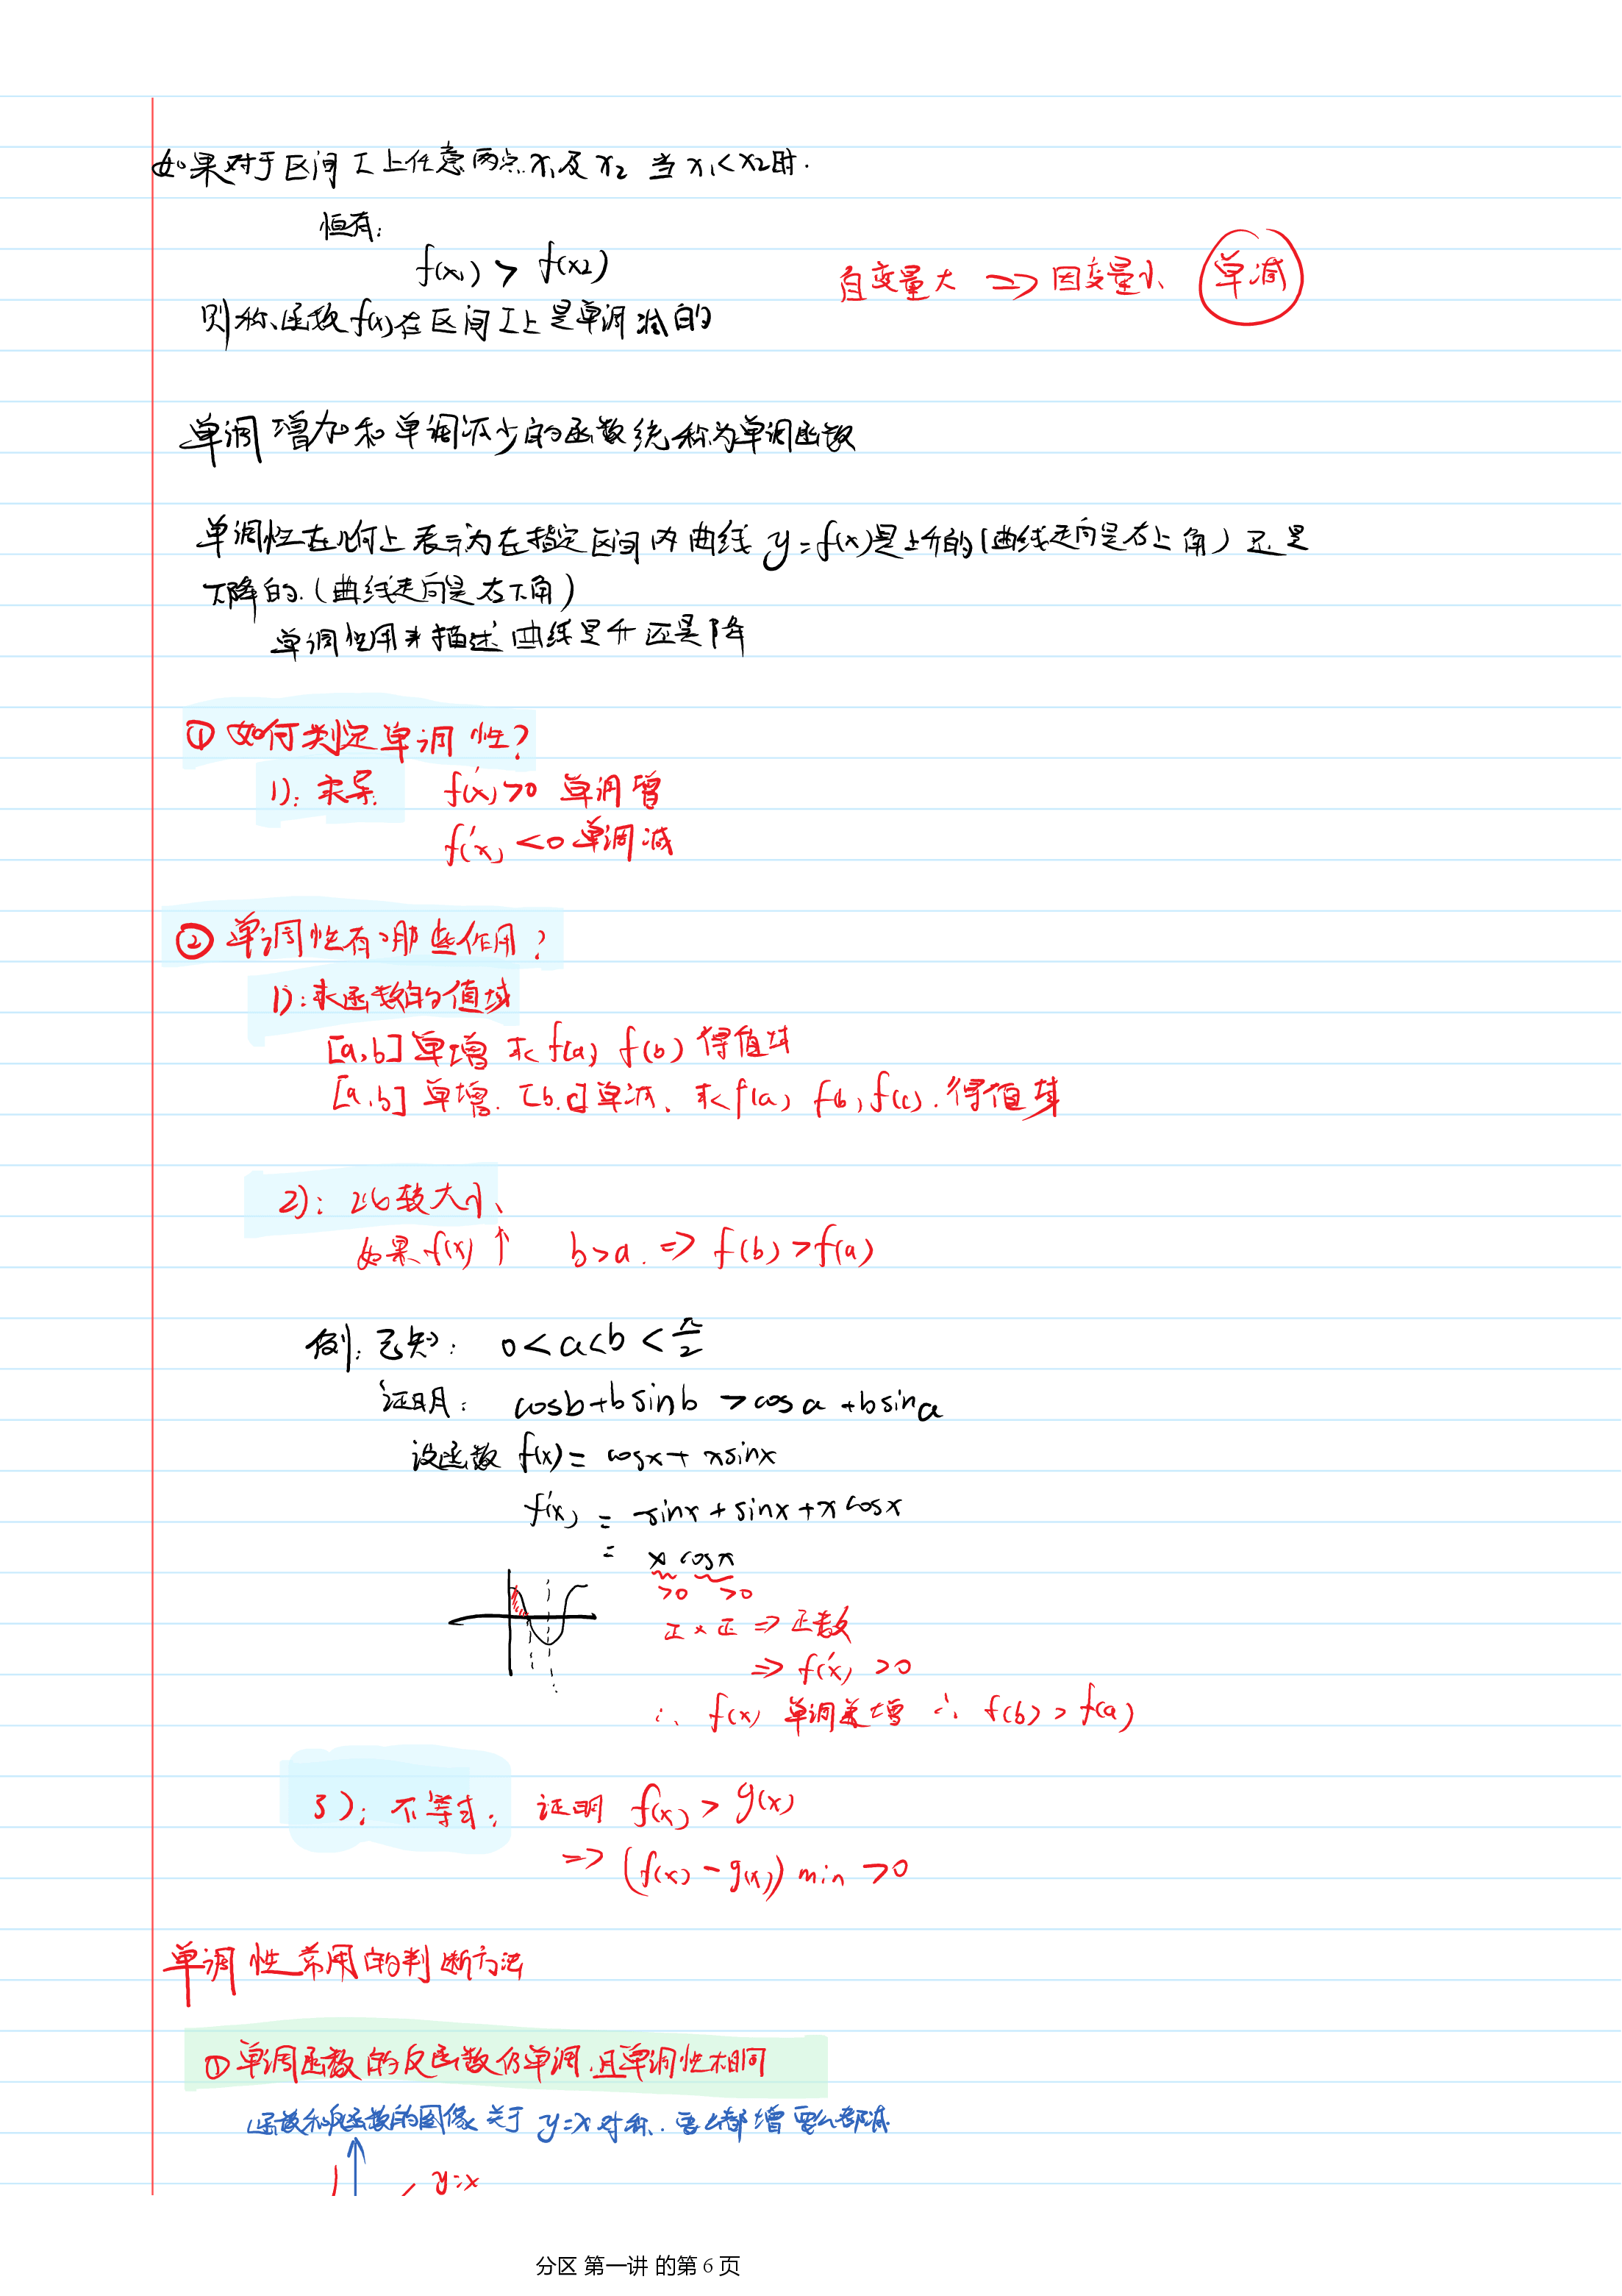 如果对于区间 I 上任意两点 x₁及 x₂ 当 x₁<x₂时.
恒有:
f(x₁) > f(x₂)
自变量大 => 因变量小 单减
则称函数 f(x)在区间 I 上是单调减的
单调增加和单调减少的函数统称为单调函数
单调性在几何上表示为在指定区间内曲线 y=f(x)是上升的(曲线走向是右上角)还是
下降的.(曲线走向是右下角)
单调性用来描述曲线是升还是降
① 如何判定单调性?
1): 求导. f'(x)>0 单调增
f'(x)<0 单调减
② 单调性有哪些作用?
1):求函数的值域
[a,b]单增 求f(a) f(b) 得值域
[a,b] 单增. [b,c]单减、求f(a) f(b) f(c).得值域
2): 比较大小、
如果 f(x)↑ b>a. => f(b)>f(a)
例: 已知: 0<a<b<π/2
证明: cosb+bsinb >cosa+bsina
设函数 f(x)= cosx+xsinx
f'(x) = -sinx+sinx+xcosx
= xcosx
>0 >0
正×正 => 正数
=> f'(x)>0
∴ f(x) 单调递增 ∴ f(b)>f(a)
3): 不等式: 证明 f(x)>g(x)
=> (f(x)-g(x)) min >0
单调性常用的判断方法
① 单调函数的反函数仍单调.且单调性相同
函数和反函数的图像关于 y=x对称. 要么都增要么都减
y=x
分区 第一讲 的第 6 页